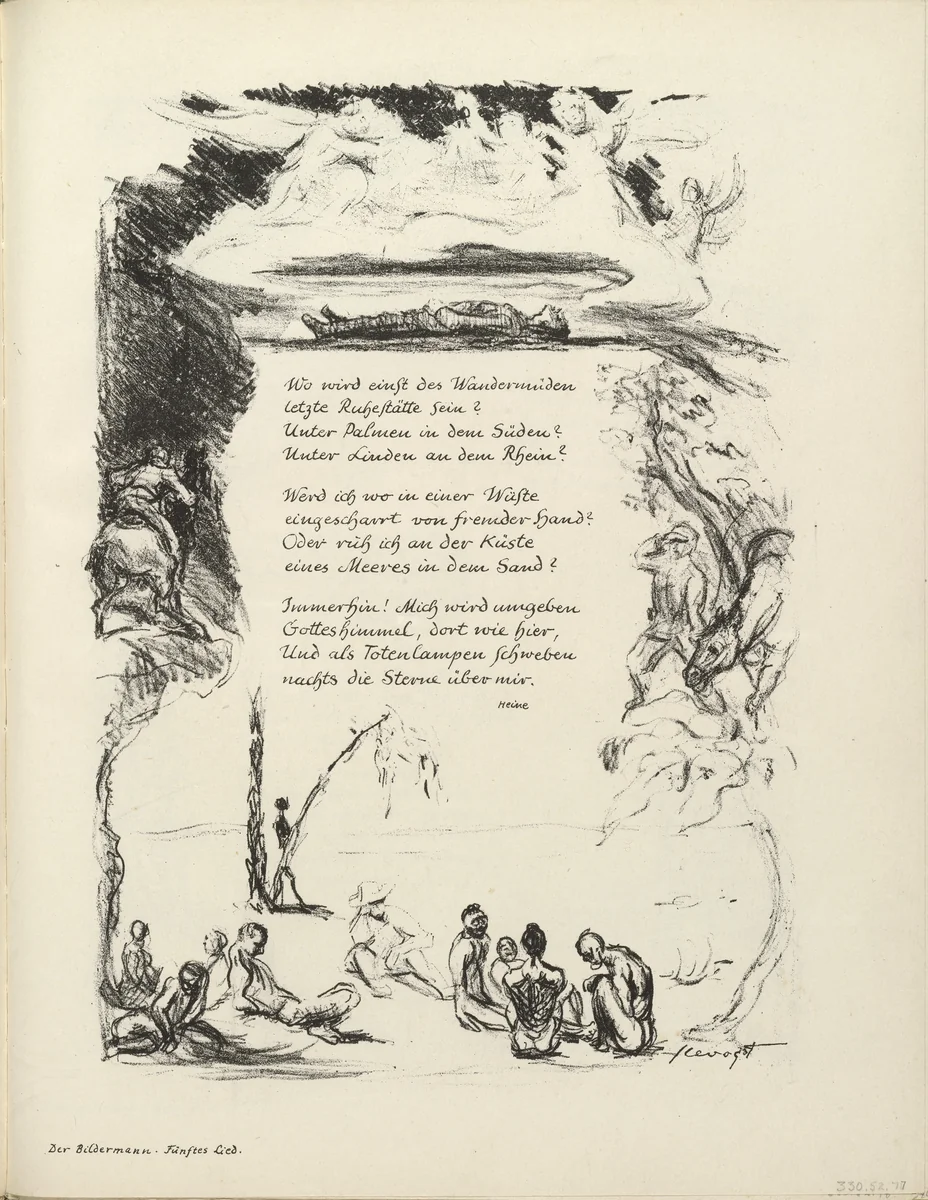 Wo wird einst des Wandermüden
letzte Ruhestätte sein?
Unter Palmen in dem Süden?
Unter Linden an dem Rhein?
Werd ich wo in einer Wüste
eingescharrt von fremder Hand?
Oder ruh ich an der Küste
eines Meeres in dem Sand?
Immerhin! Mich wird umgeben
Gotteshimmel, dort wie hier,
Und als Totenlampen schweben
nachts die Sterne über mir.
Heine
Slevogt
Der Bildermann · Fünftes Lied.
330.52.77